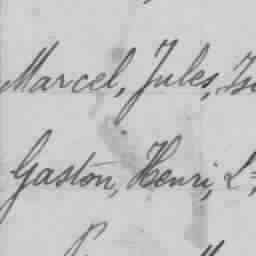 Marcel, Jules,
Gaston, Henri,